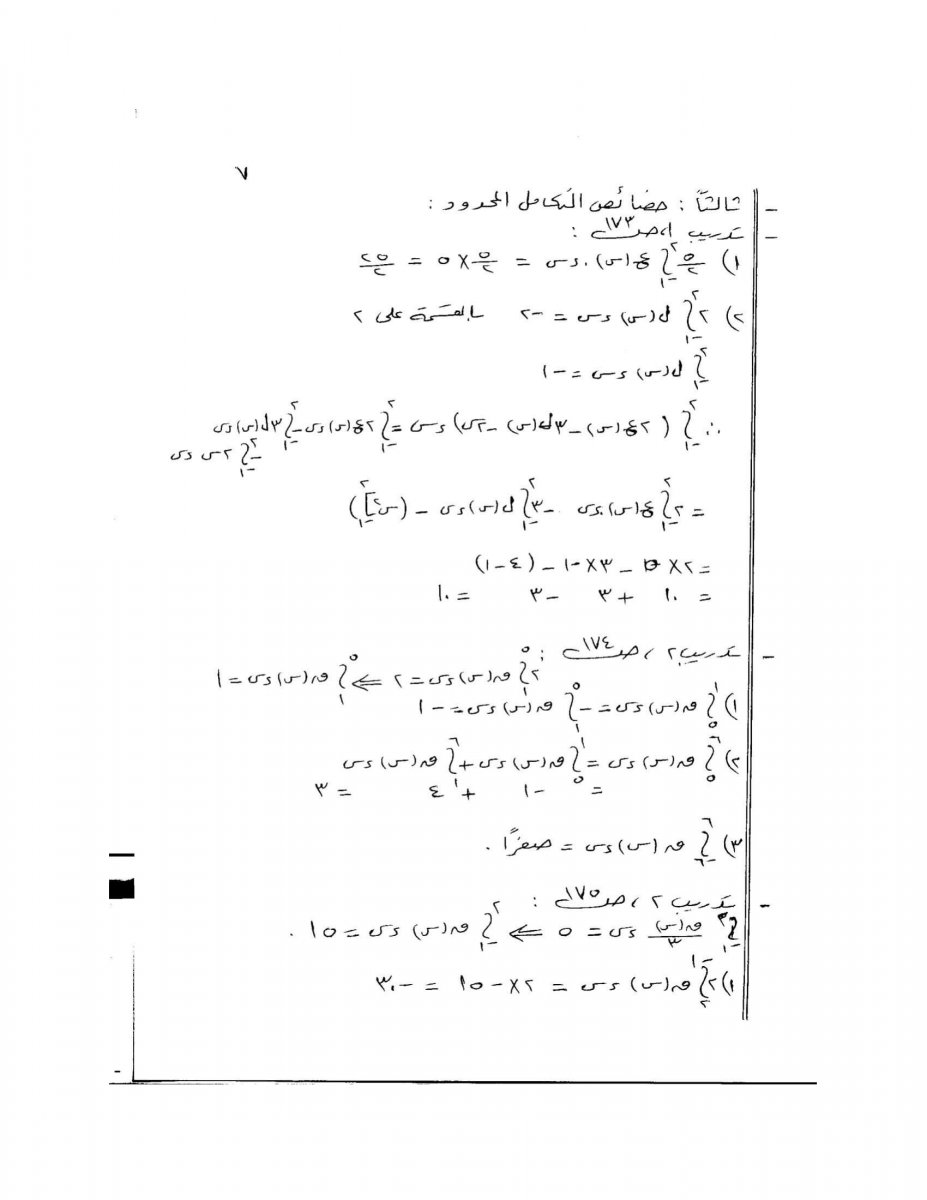 ٧
- ثالثاً : خصائص التكامل المحدود :
- تدريب ١ ، صـ ١٧٣ :
١) ٥/٢ ∫_{-١}^{٢} ع(س) . دس = ٥/٢ × ٥ = ٢٥/٢
٢) ٢ ∫_{-١}^{٢} ل(س) دس = -٢ بالقسمة على ٢
∫_{-١}^{٢} ل(س) دس = -١
∴ ∫_{-١}^{٢} (٢ع(س) - ٣ل(س) - ٢س) دس = ∫_{-١}^{٢} ٢ع(س) دس - ∫_{-١}^{٢} ٣ل(س) دس
- ∫_{-١}^{٢} ٢س دس
= ٢ ∫_{-١}^{٢} ع(س) . دس - ٣ ∫_{-١}^{٢} ل(س) دس - (س٢]_{-١}^{٢})
= ٢×٥ - ٣×-١ - (٤-١)
= ١٠ + ٣ - ٣ = ١٠
- تدريب ٢ ، صـ ١٧٤ :
٢ ∫_{١}^{٥} ق(س) دس = ٢ ⇐ ∫_{١}^{٥} ق(س) دس = ١
١) ∫_{٥}^{١} ق(س) دس = - ∫_{١}^{٥} ق(س) دس = -١
٢) ∫_{٥}^{٦} ق(س) دس = ∫_{٥}^{١} ق(س) دس + ∫_{١}^{٦} ق(س) دس
= -١ + ٤ = ٣
٣) ∫_{-٦}^{٦} ق(س) دس = صفرًا .
- تدريب ٢ ، صـ ١٧٥ :
∫_{-١}^{٢} ق(س)/٣ دس = ٥ ⇐ ∫_{-١}^{٢} ق(س) دس = ١٥ .
١) ٢ ∫_{٢}^{-١} ق(س) دس = ٢×-١٥ = -٣٠